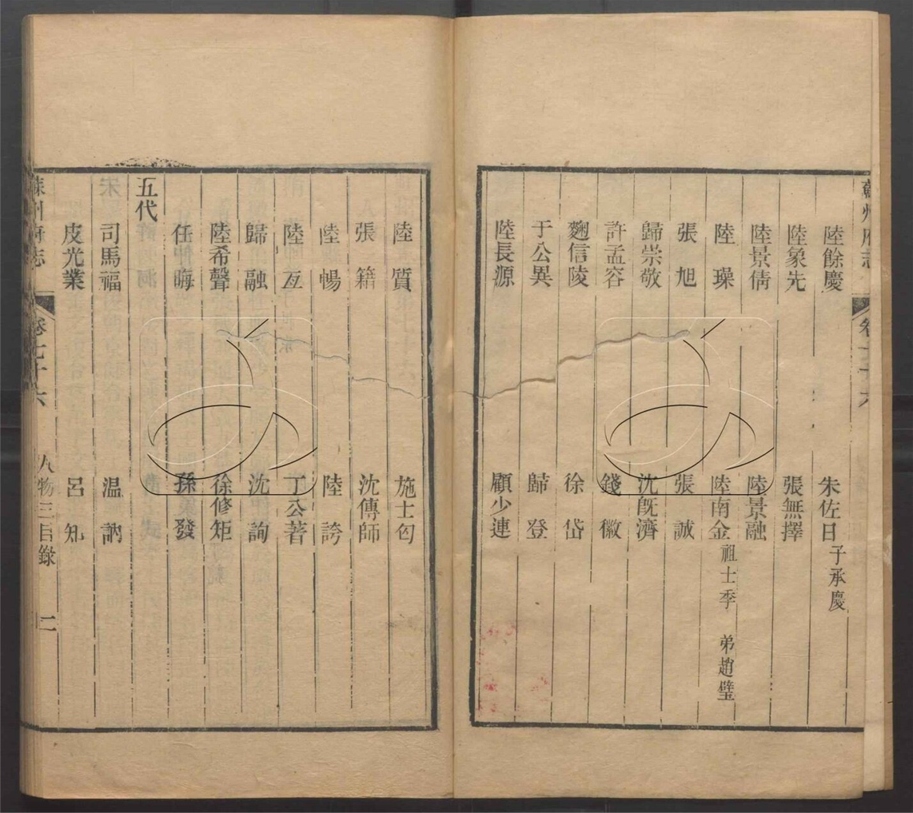 陸餘慶 朱佐日 子承慶
陸象先 張無擇
陸景倩 陸景融
陸璪 陸南金 祖士季 弟趙璧
張旭 張誠
歸崇敬 沈旣濟
許孟容 錢徽
麴信陵 徐岱
于公異 歸登
陸長源 顧少連
陸質 施士匄
張籍 沈傳師
陸暢 陸
陸亙 丁公著
歸融 沈詢
陸希聲 徐修矩
任晦 孫發
五代
司馬福 温訥
皮光業 呂知
蘇州府志 卷七十六 人物三目錄 二